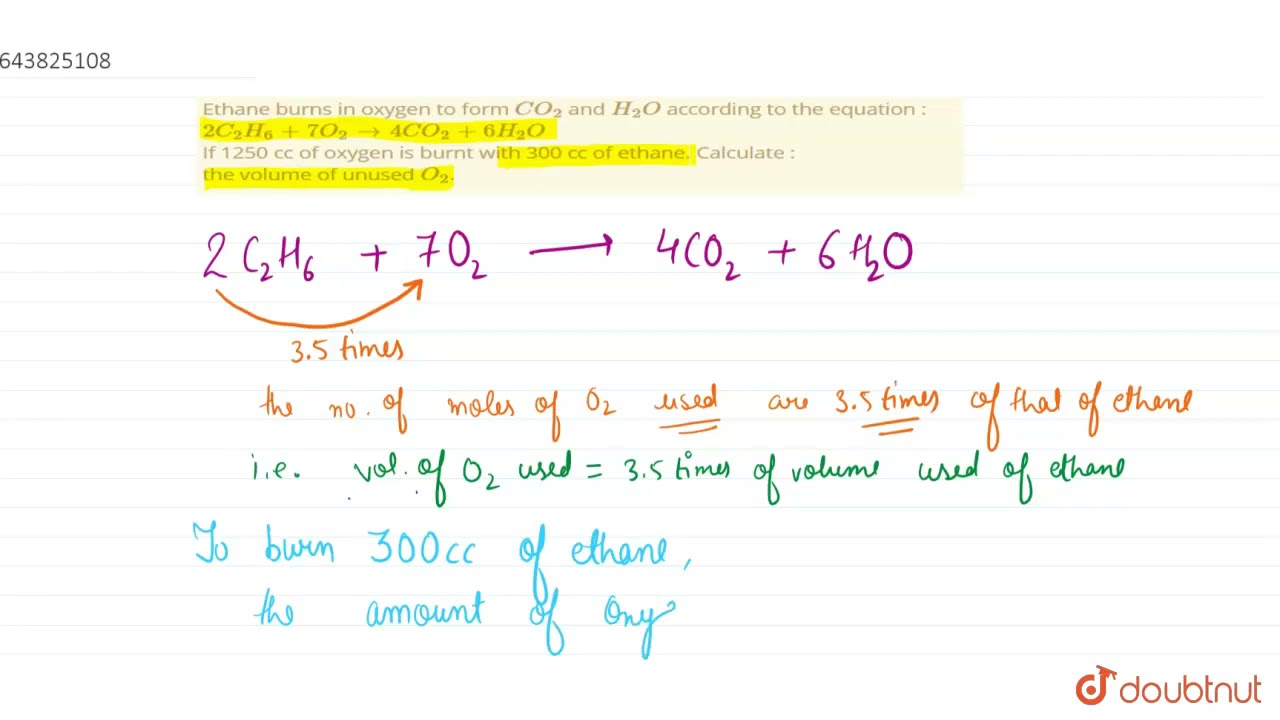 643825108
Ethane burns in oxygen to form CO₂ and H₂O according to the equation :
2C₂H₆ + 7O₂ → 4CO₂ + 6H₂O
If 1250 cc of oxygen is burnt with 300 cc of ethane. Calculate :
the volume of unused O₂.
2C₂H₆ + 7O₂ ⟶ 4CO₂ + 6H₂O
3.5 times
the no. of moles of O₂ used are 3.5 times of that of ethane
i.e. vol. of O₂ used = 3.5 times of volume used of ethane
To burn 300cc of ethane,
the amount of Oxy
doubtnut